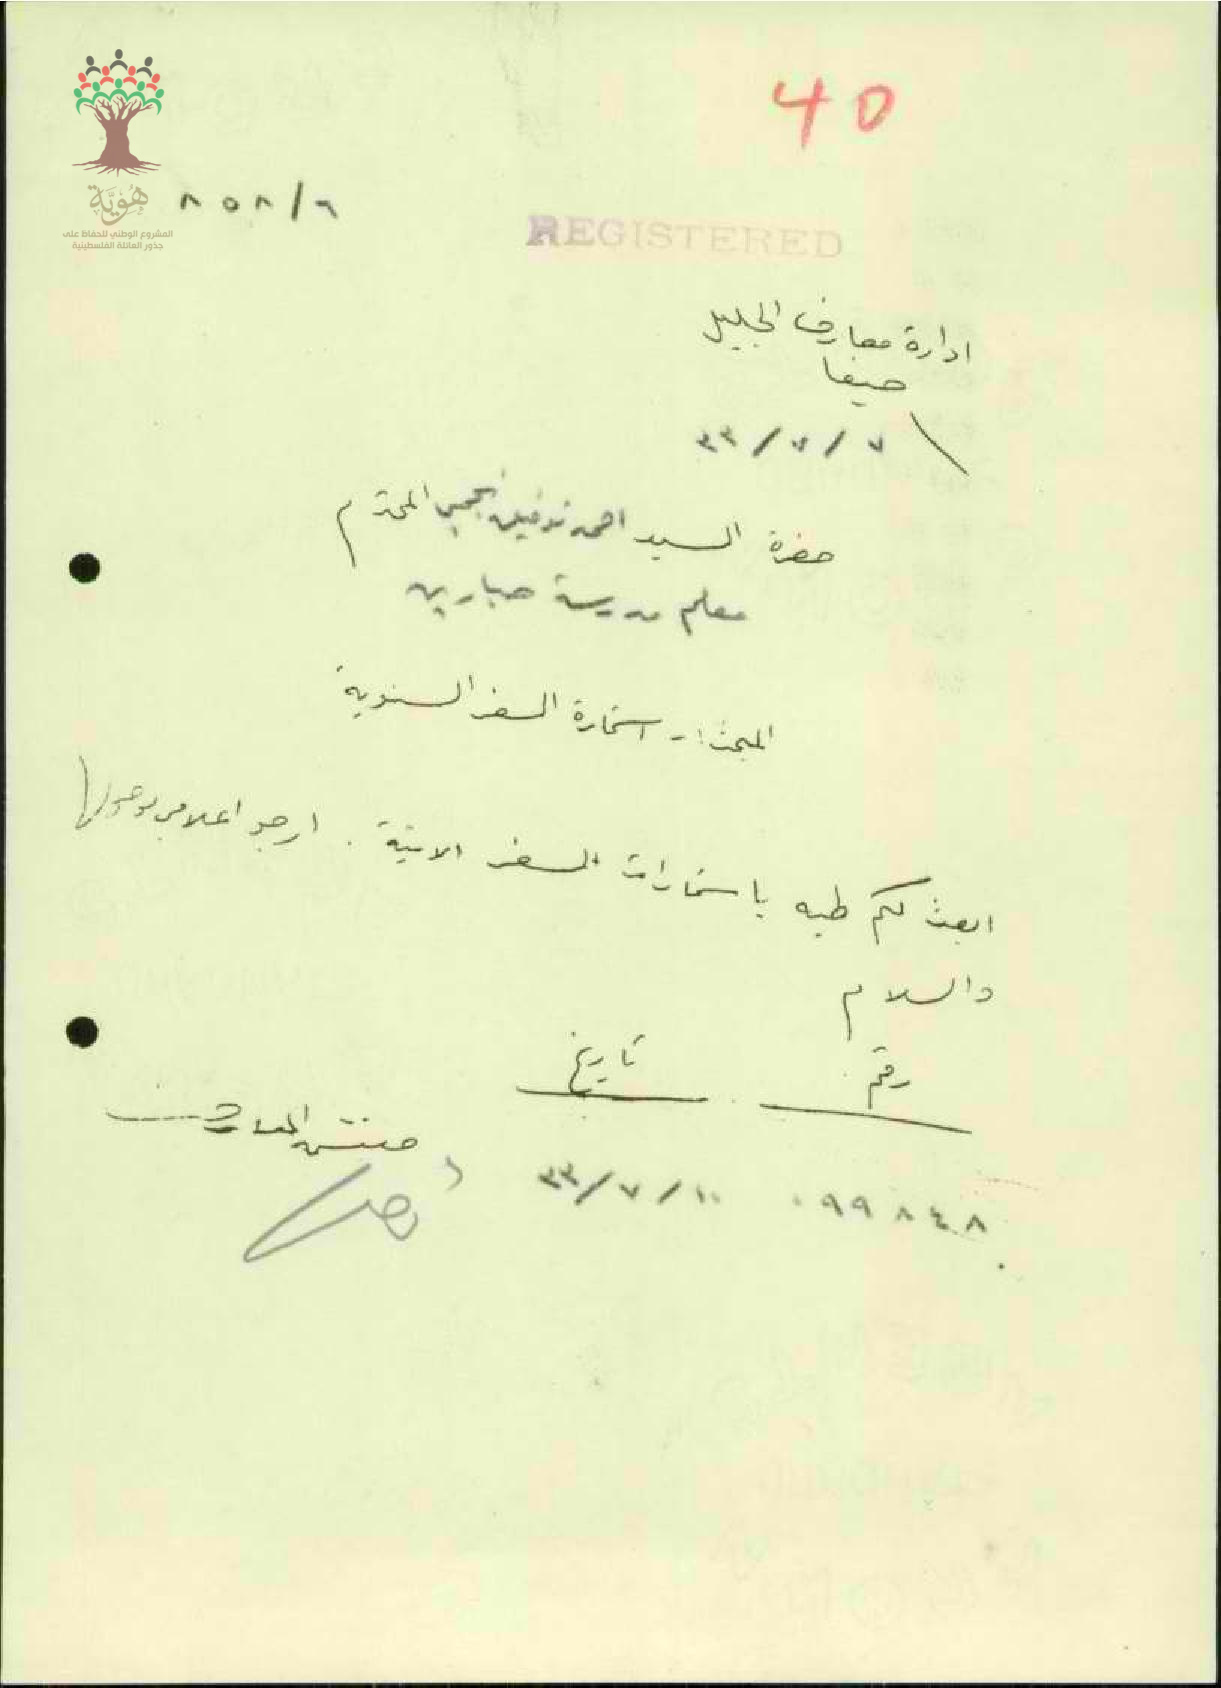 40
هوية
المشروع الوطني للحفاظ على
جذور العائلة الفلسطينية
٨٥٨/٦
REGISTERED
ادارة معارف الجليل
حيفا
٣٣/٧/٧
حضرة السيد احمد توفيق المحترم
معلم مدرسة صبارين
المبحث :- استمارة السفر السنوية
ابعث لكم طيه باستمارات السفر الاتية . ارجو اعلامي بوصولها
والسلام
رقم تاريخ
مفتش المعارف
٠٩٩٨٤٨ ٣٣/٧/١٠